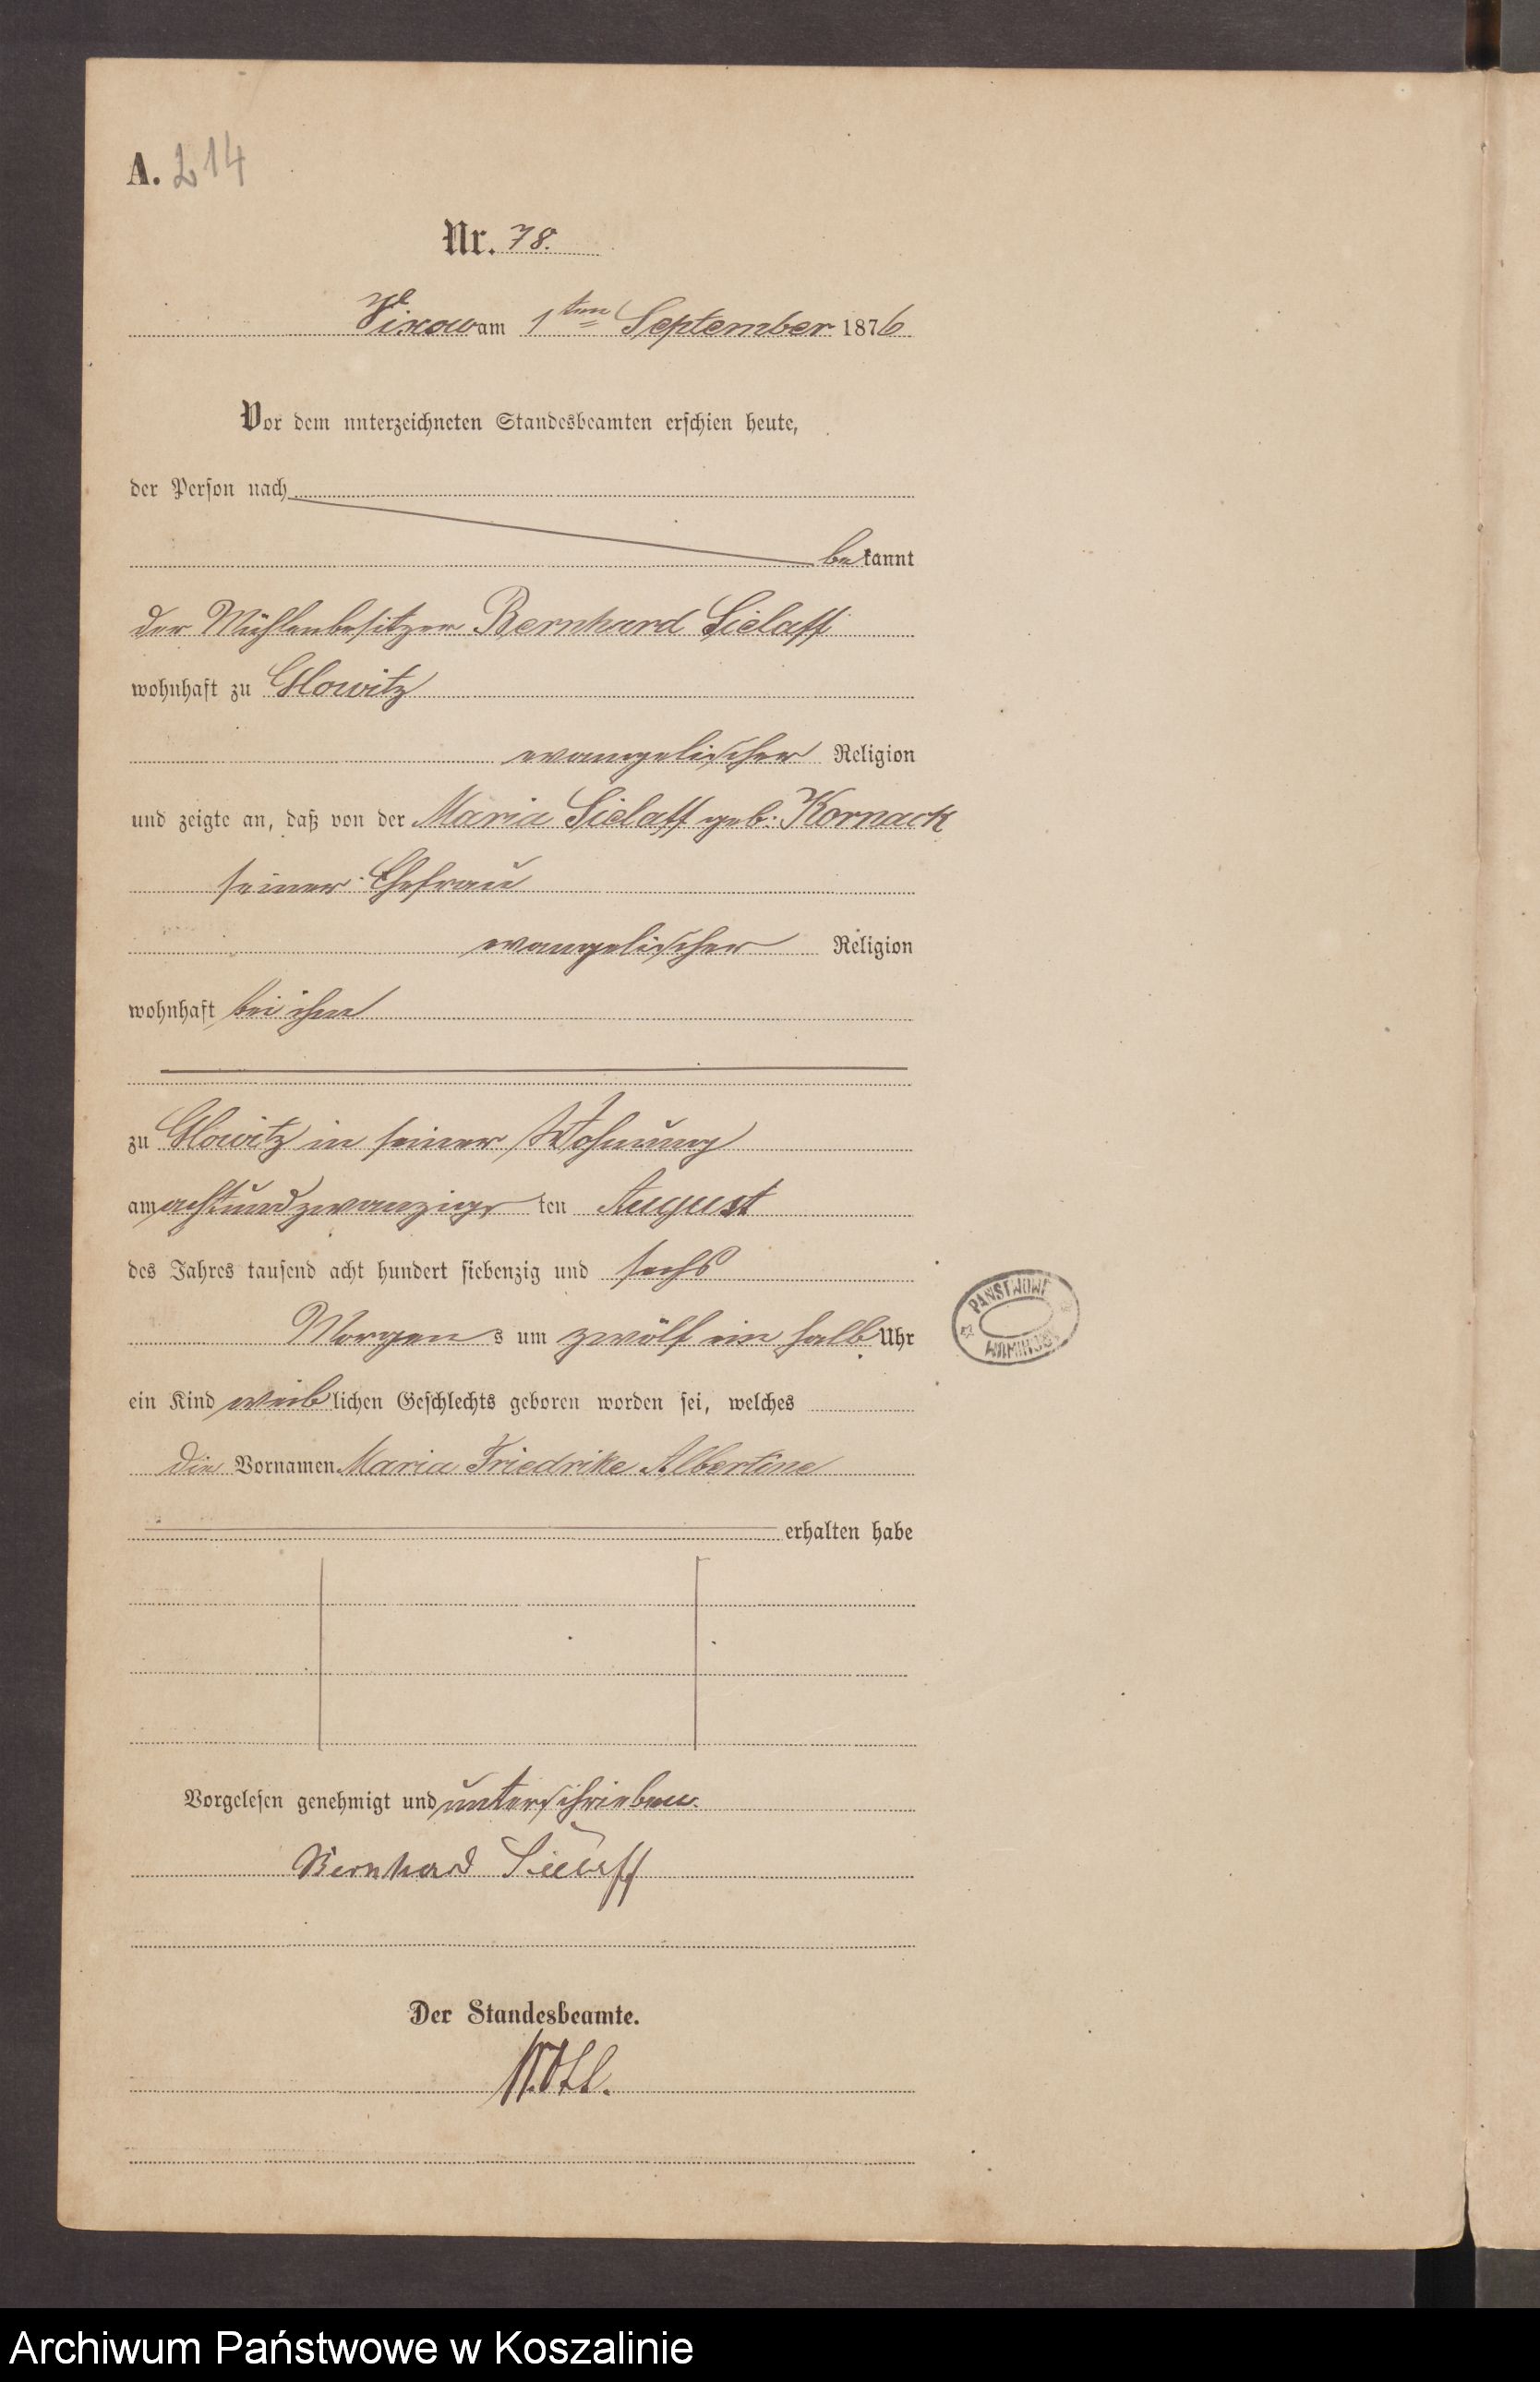 A. 214
Nr. 78.
Vixow am 1ten September 1876
Vor dem unterzeichneten Standesbeamten erschien heute,
der Person nach
bekannt
der Mühlenbesitzer Bernhard Sielaff
wohnhaft zu Glowitz
evangelischer Religion
und zeigte an, daß von der Maria Sielaff geb: Kornack
seiner Ehefrau
evangelischer Religion
wohnhaft bei ihm
zu Glowitz in seiner Wohnung
am achtundzwanzigs ten August
des Jahres tausend acht hundert siebenzig und sechs
Morgens um zwölf ein halb Uhr
ein Kind weiblichen Geschlechts geboren worden sei, welches
die Vornamen Maria Friedrike Albertine
erhalten habe
Vorgelesen genehmigt und unterschrieben.
Bernhard Sielaff
Der Standesbeamte.
PAŃSTWOWE
Archiwum Państwowe w Koszalinie